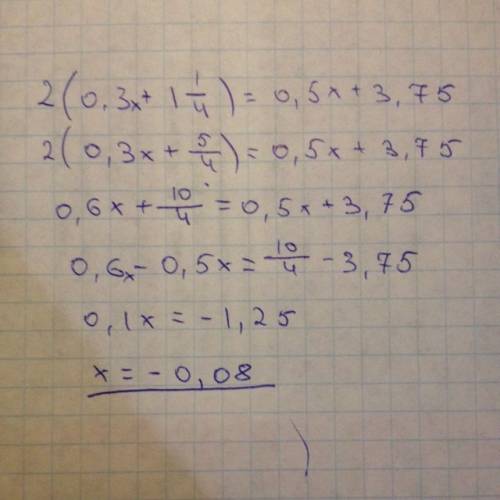 2(0,3x + 1 1/4) = 0,5x + 3,75
2(0,3x + 5/4) = 0,5x + 3,75
0,6x + 10/4 = 0,5x + 3,75
0,6x - 0,5x = 10/4 - 3,75
0,1x = -1,25
x = -0,08
)